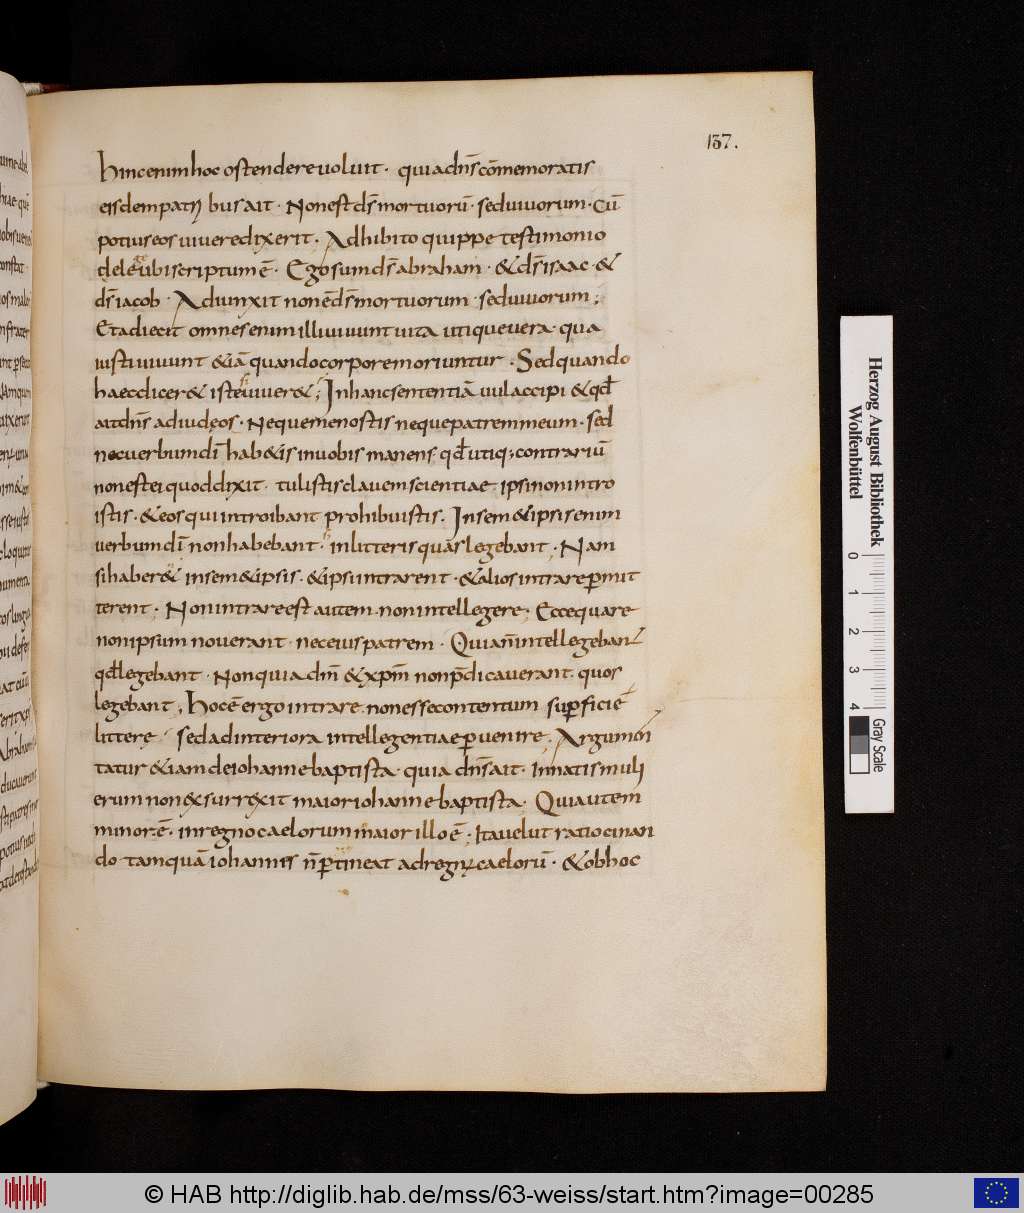 137.
hinc enim hoc ostendere uoluit · quia dn̄s cōmemoratis
eisdem patribus ait · Non est ds̄ mortuorū · sed uiuorum · Cū
potius eos uiuere dixerit · Adhibito quippe testimonio
ubi scriptum ē · Ego sum ds̄ abraham · & ds̄ isaac · &
ds̄ iacob · Adiunxit non ē ds̄ mortuorum · sed uiuorum ;
Et adiecit omnes enim illi uiuunt uita utique uera · qua
iusti uiuunt & iā quando corpore moriuntur · Sed quando
haec dicer& iste uiuer& ; In hanc sententiā uul accipi & qđ
ait dn̄s ad iudęos · Neque me nostis neque patrem meum · sed
nec uerbum dī hab&is in uobis manens qđ utiq; contrariū
non est ei quod dixit · tulistis clauem scientiae ipsi non intro
istis · & eos qui introibant prohibuistis · In sem&ipsis enim
uerbum dī non habebant · in litteris quas legebant ; Nam
si haber& in sem&ipsis · & ipsi intrarent · & alios intrare ꝑmit
terent ; Non intrare est autem non intellegere ; Ecce quare
non ipsum nouerant · nec eius patrem · Quia n̄ intellegebant
qđ legebant · Non quia dn̄m & xp̄m non p̄dicauerant quos
legebant ; Hoc ē ergo intrare · non esse contentum suꝑficie
litterę · sed ad interiora intellegentiae ꝑuenire ; Argumen
tatur & iam de iohanne baptista · quia dn̄s ait · In natis muli
erum non exsurrexit maior iohanne baptista · Qui autem
minor ē · in regno caelorum maior illo ē ; Ita uelut ratiocinan
do tamquā iohannes n̄ ꝑtineat ad regnū caelorū · & ob hoc
Herzog August Bibliothek
Wolfenbüttel
0 1 2 3 4
Gray Scale
© HAB http://diglib.hab.de/mss/63-weiss/start.htm?image=00285